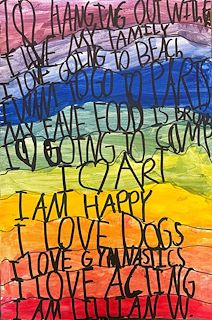 I ♡ HANGING OUT WITH
I LOVE MY FAMILY
I LOVE GOING TO BEACH
I WANT TO GO TO PARIS
MY FAVE FOOD IS
I LOVE GOING TO CAMP
I ♡ ART
I AM HAPPY
I LOVE DOGS
I LOVE GYMNASTICS
I LOVE ACTING
I AM LILLIAN W.